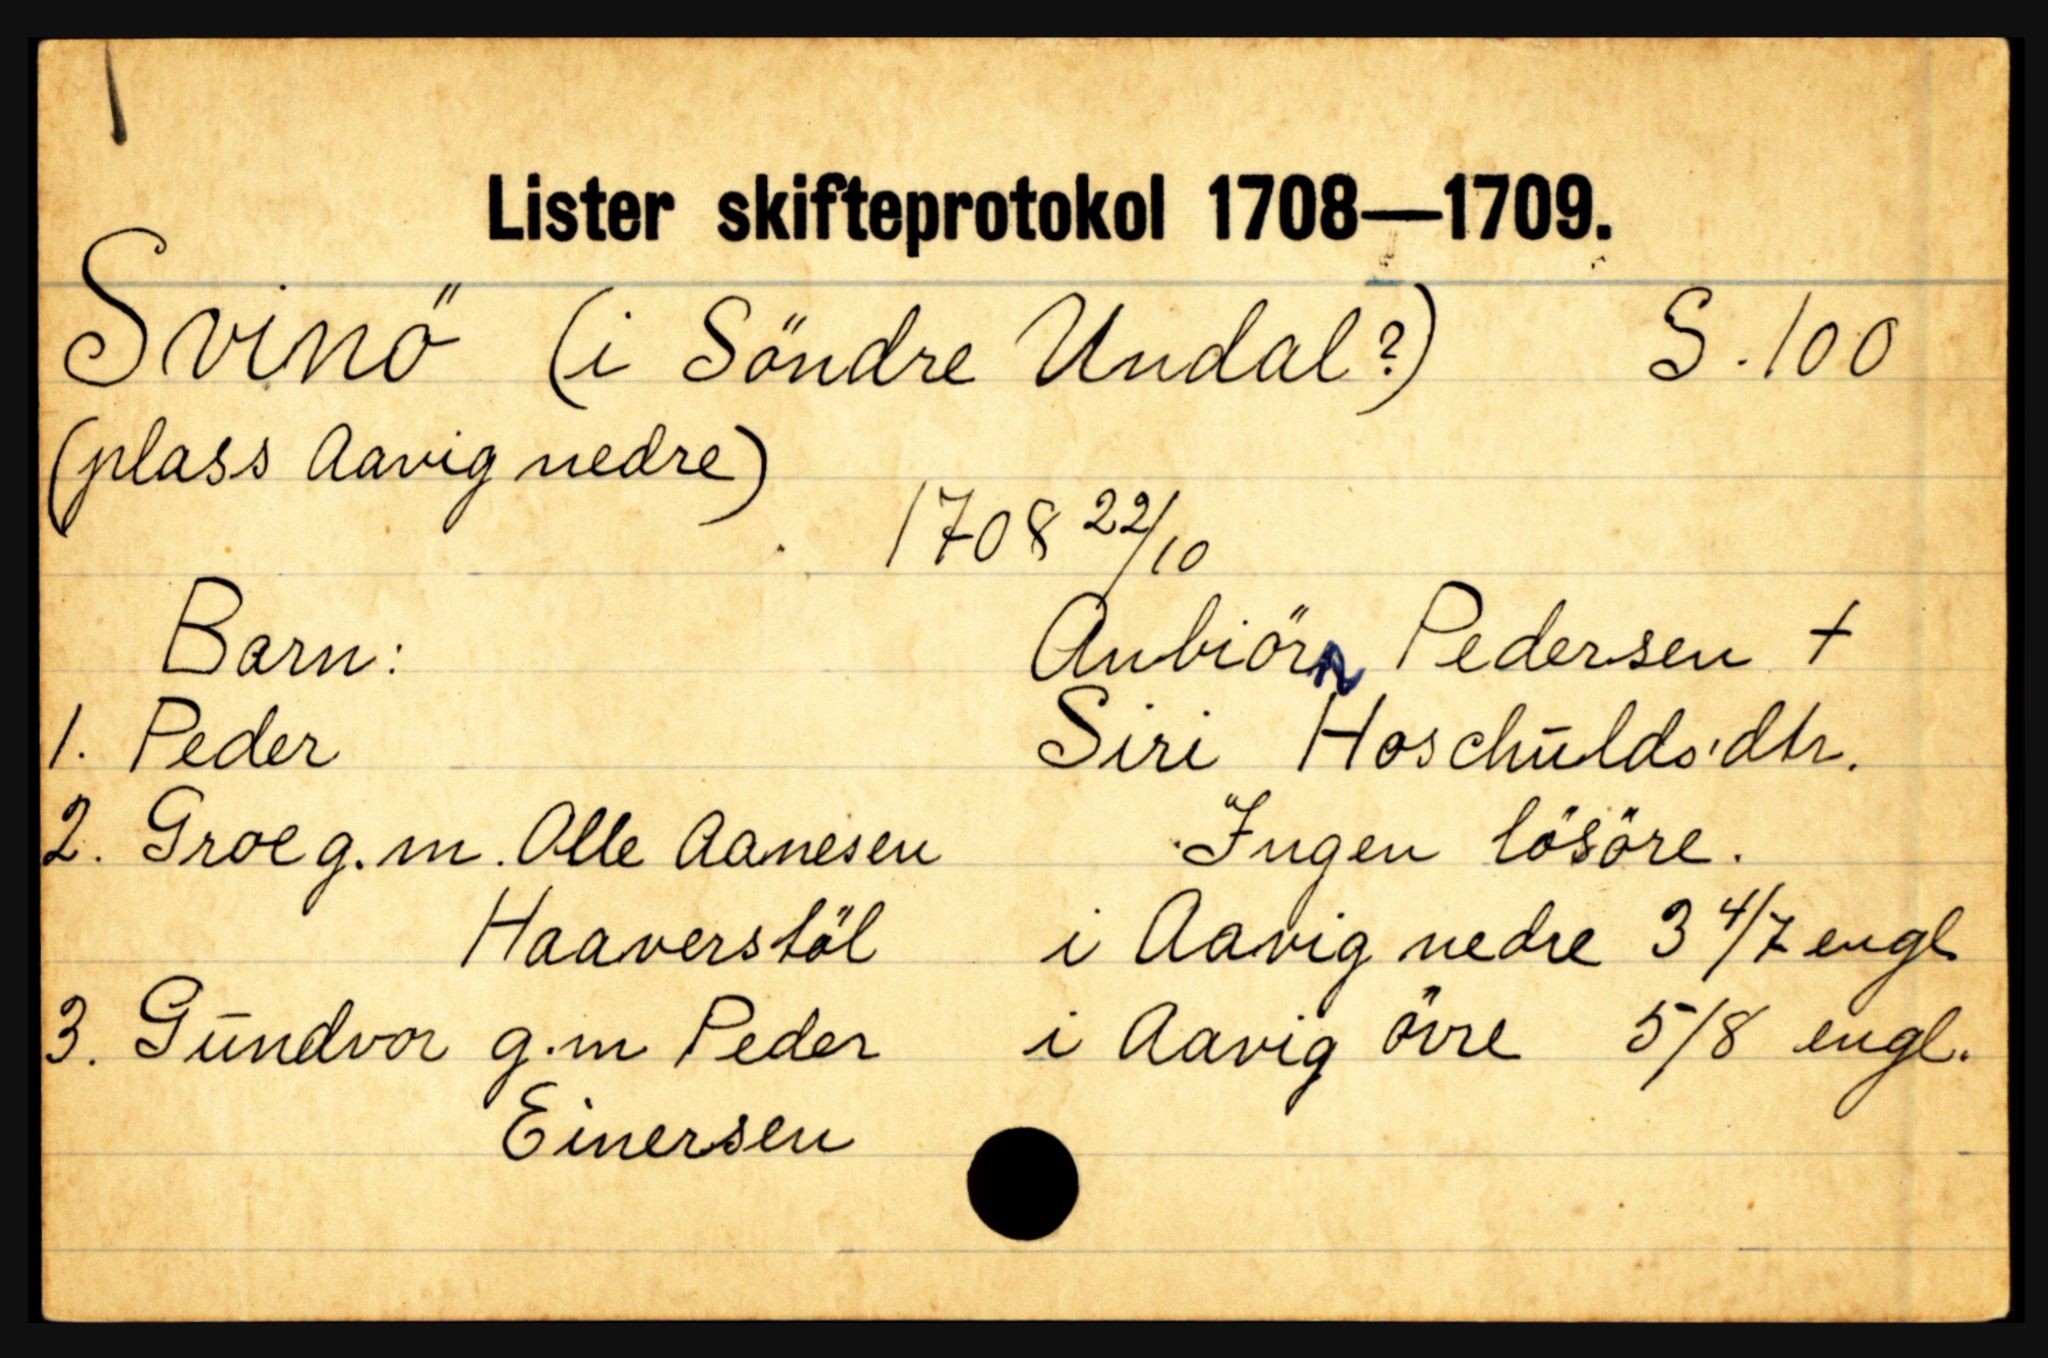 Lister skifteprotokol 1708—1709.
Svinö (i Söndre Undal?) S. 100
(plass Aavig nedre)
1708 22/10
Barn: Anbiörn Pedersen †
1. Peder Siri Hoschūlds.dtr.
2. Groe g.m. Olle Aanesen Ingen lösöre.
Haaverstöl i Aavig nedre 3 4/7 engl
3. Gūndvor g.m Peder i Aavig övre 5/8 engl.
Einersen